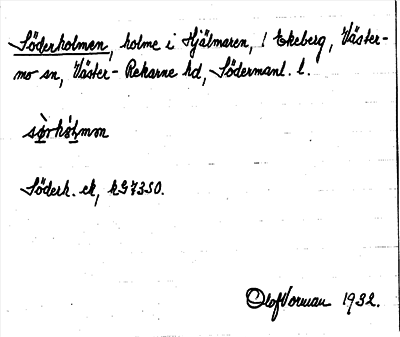 Söderholmen, holme i Hjälmaren, / Ekeberg, Väster-
mo sn, Väster-Rekarne hd, Södermanl. l.
sørhɷ́lmen
Söderh. ek,
Olof Vorman 1932.